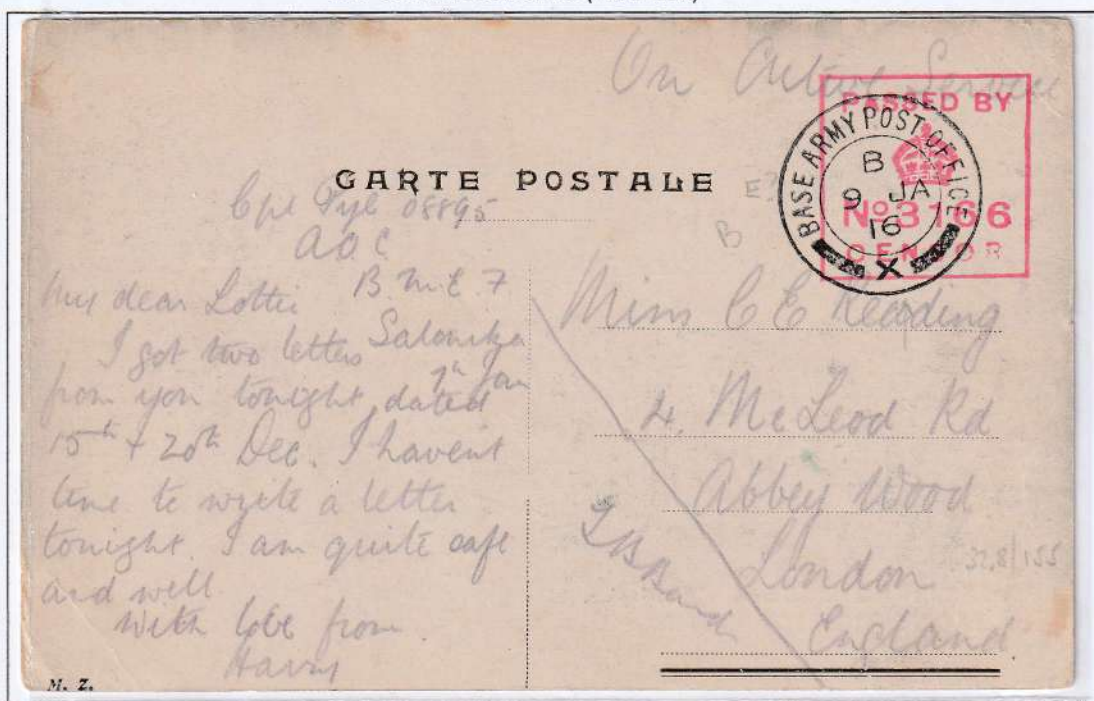 On Active Service
PASSED BY
No 3166
CENSOR
BASE ARMY POST OFFICE
B
9 JA
16
X
CARTE POSTALE
E?
B
Cpl Pyl 08895
AOC
B.M.E.F
Salonika
7th Jan
My dear Lottie
I got two letters
from you tonight dated
15th + 20th Dec. I havent
time to write a letter
tonight. I am quite safe
and well
With love from
Harry
Miss C E Reading
4. McLeod Rd
Abbey Wood
London
England
32.8/155
M. Z.